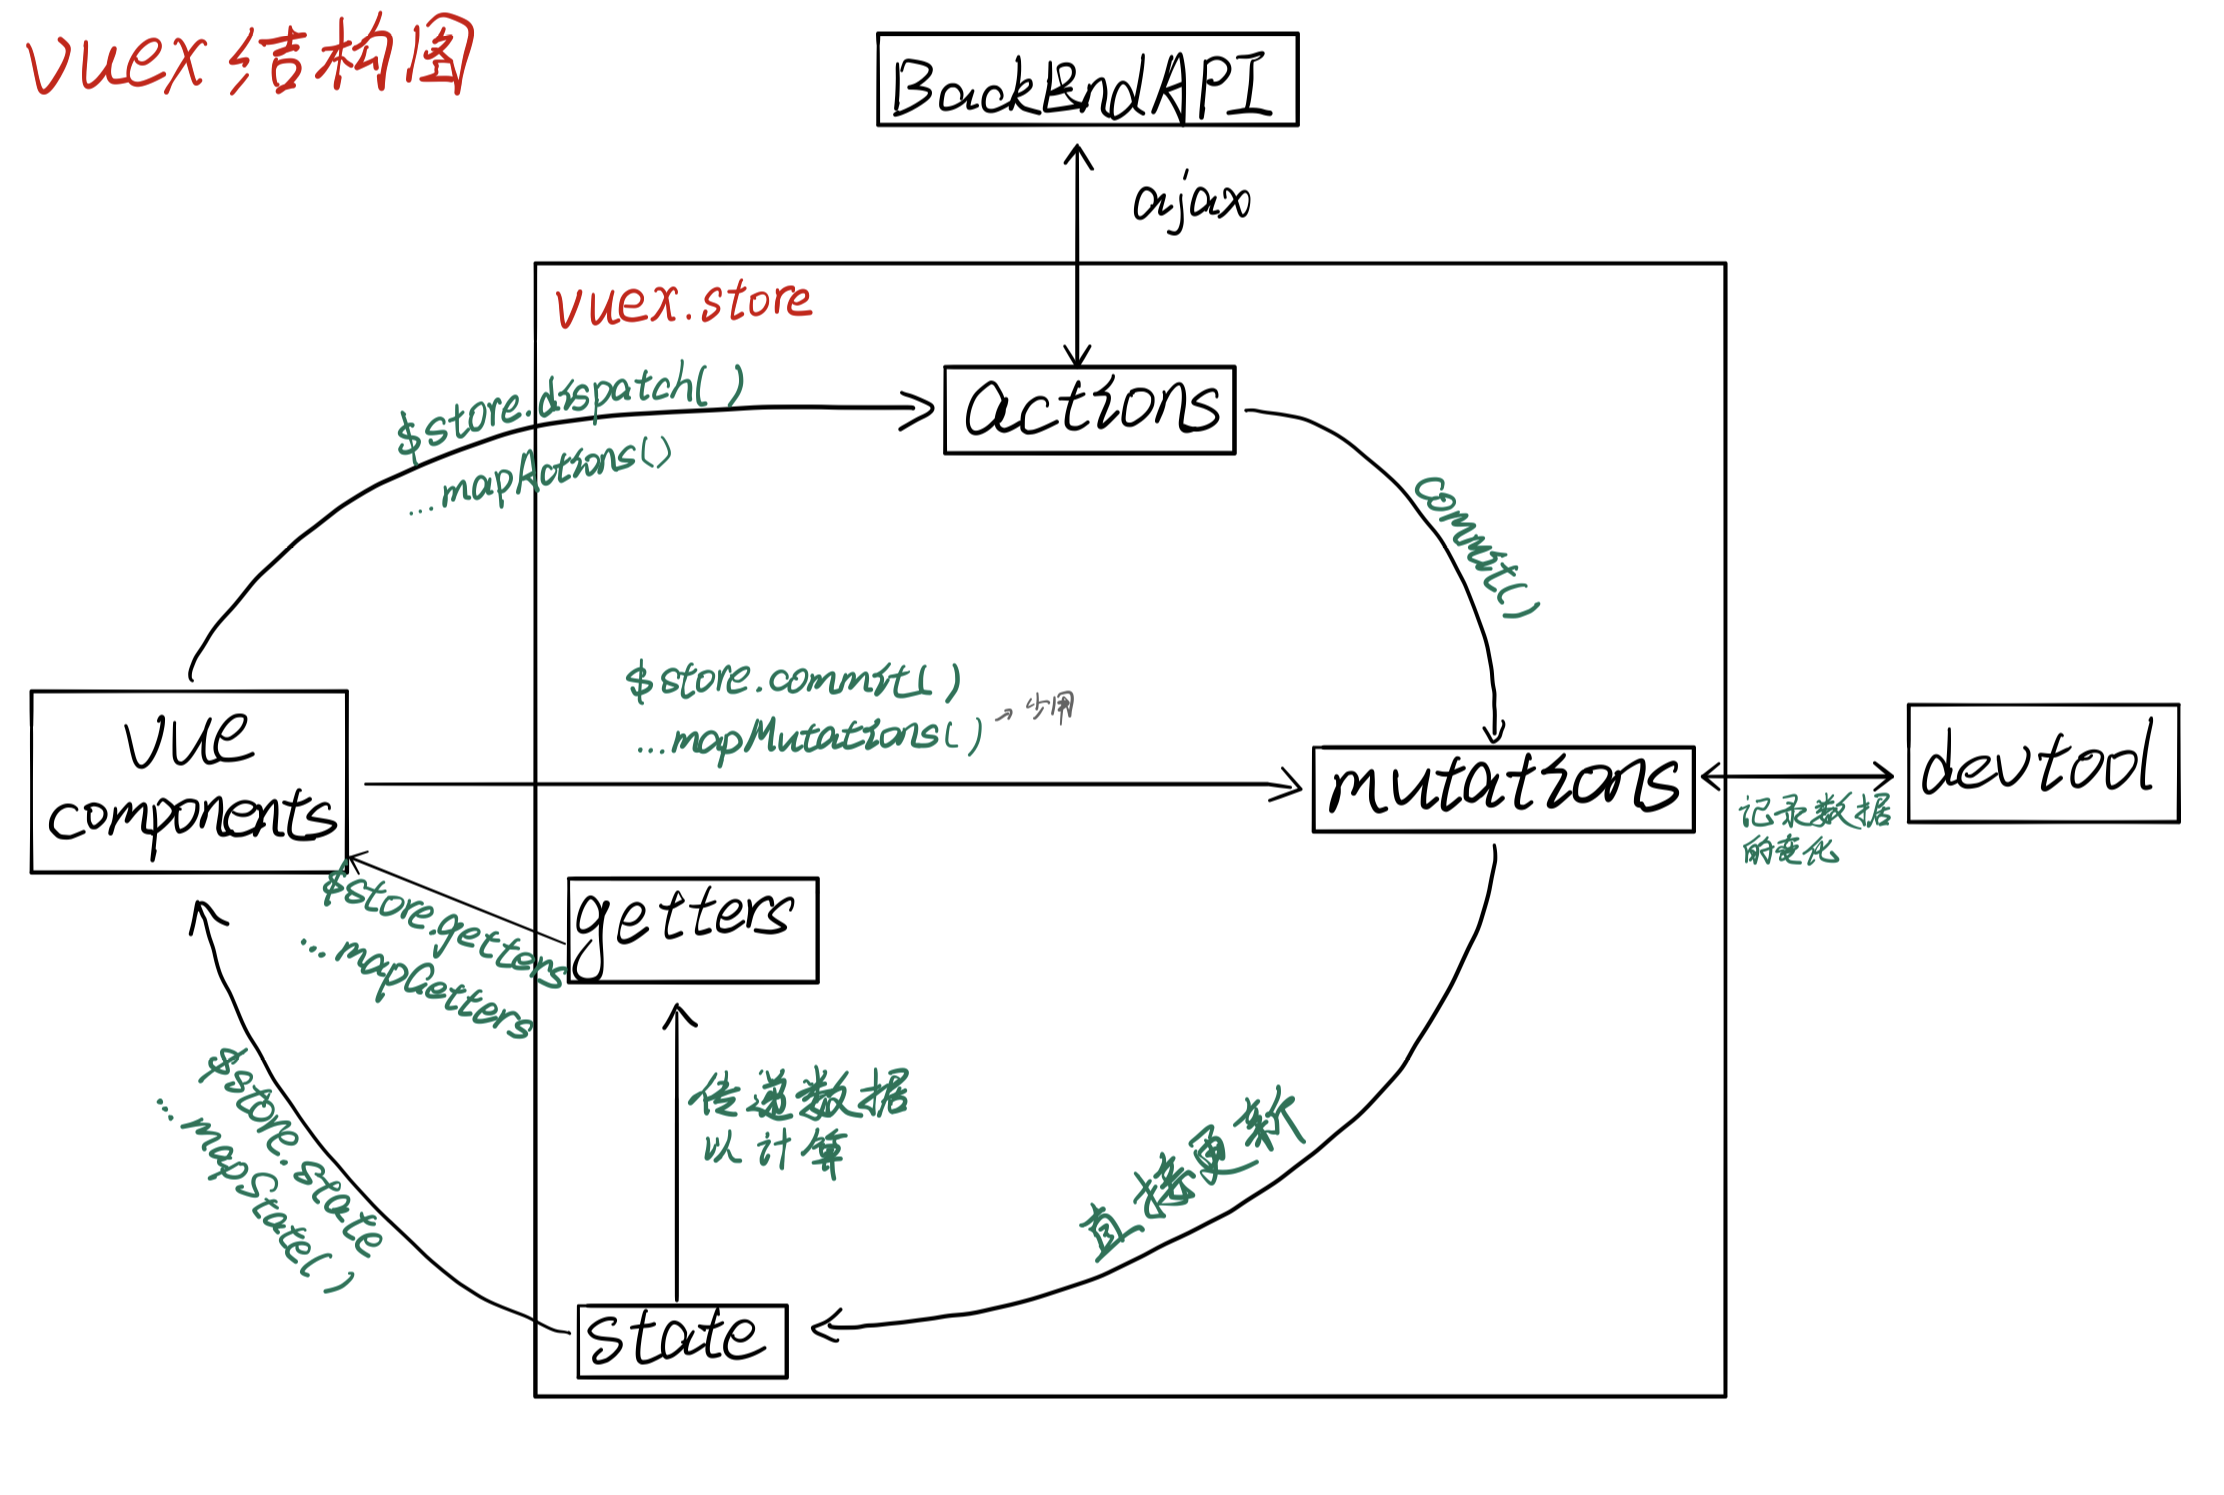 vuex 结构图
BackEndAPI
ajax
vuex.store
$store.dispatch()
...mapActions()
actions
commit()
$store.commit()
...mapMutations() → 少用
vue
components
mutations
devtool
记录数据
的变化
getters
$store.getters
...mapGetters
$store.state
...mapState()
传递数据
以计算
直接更新
state